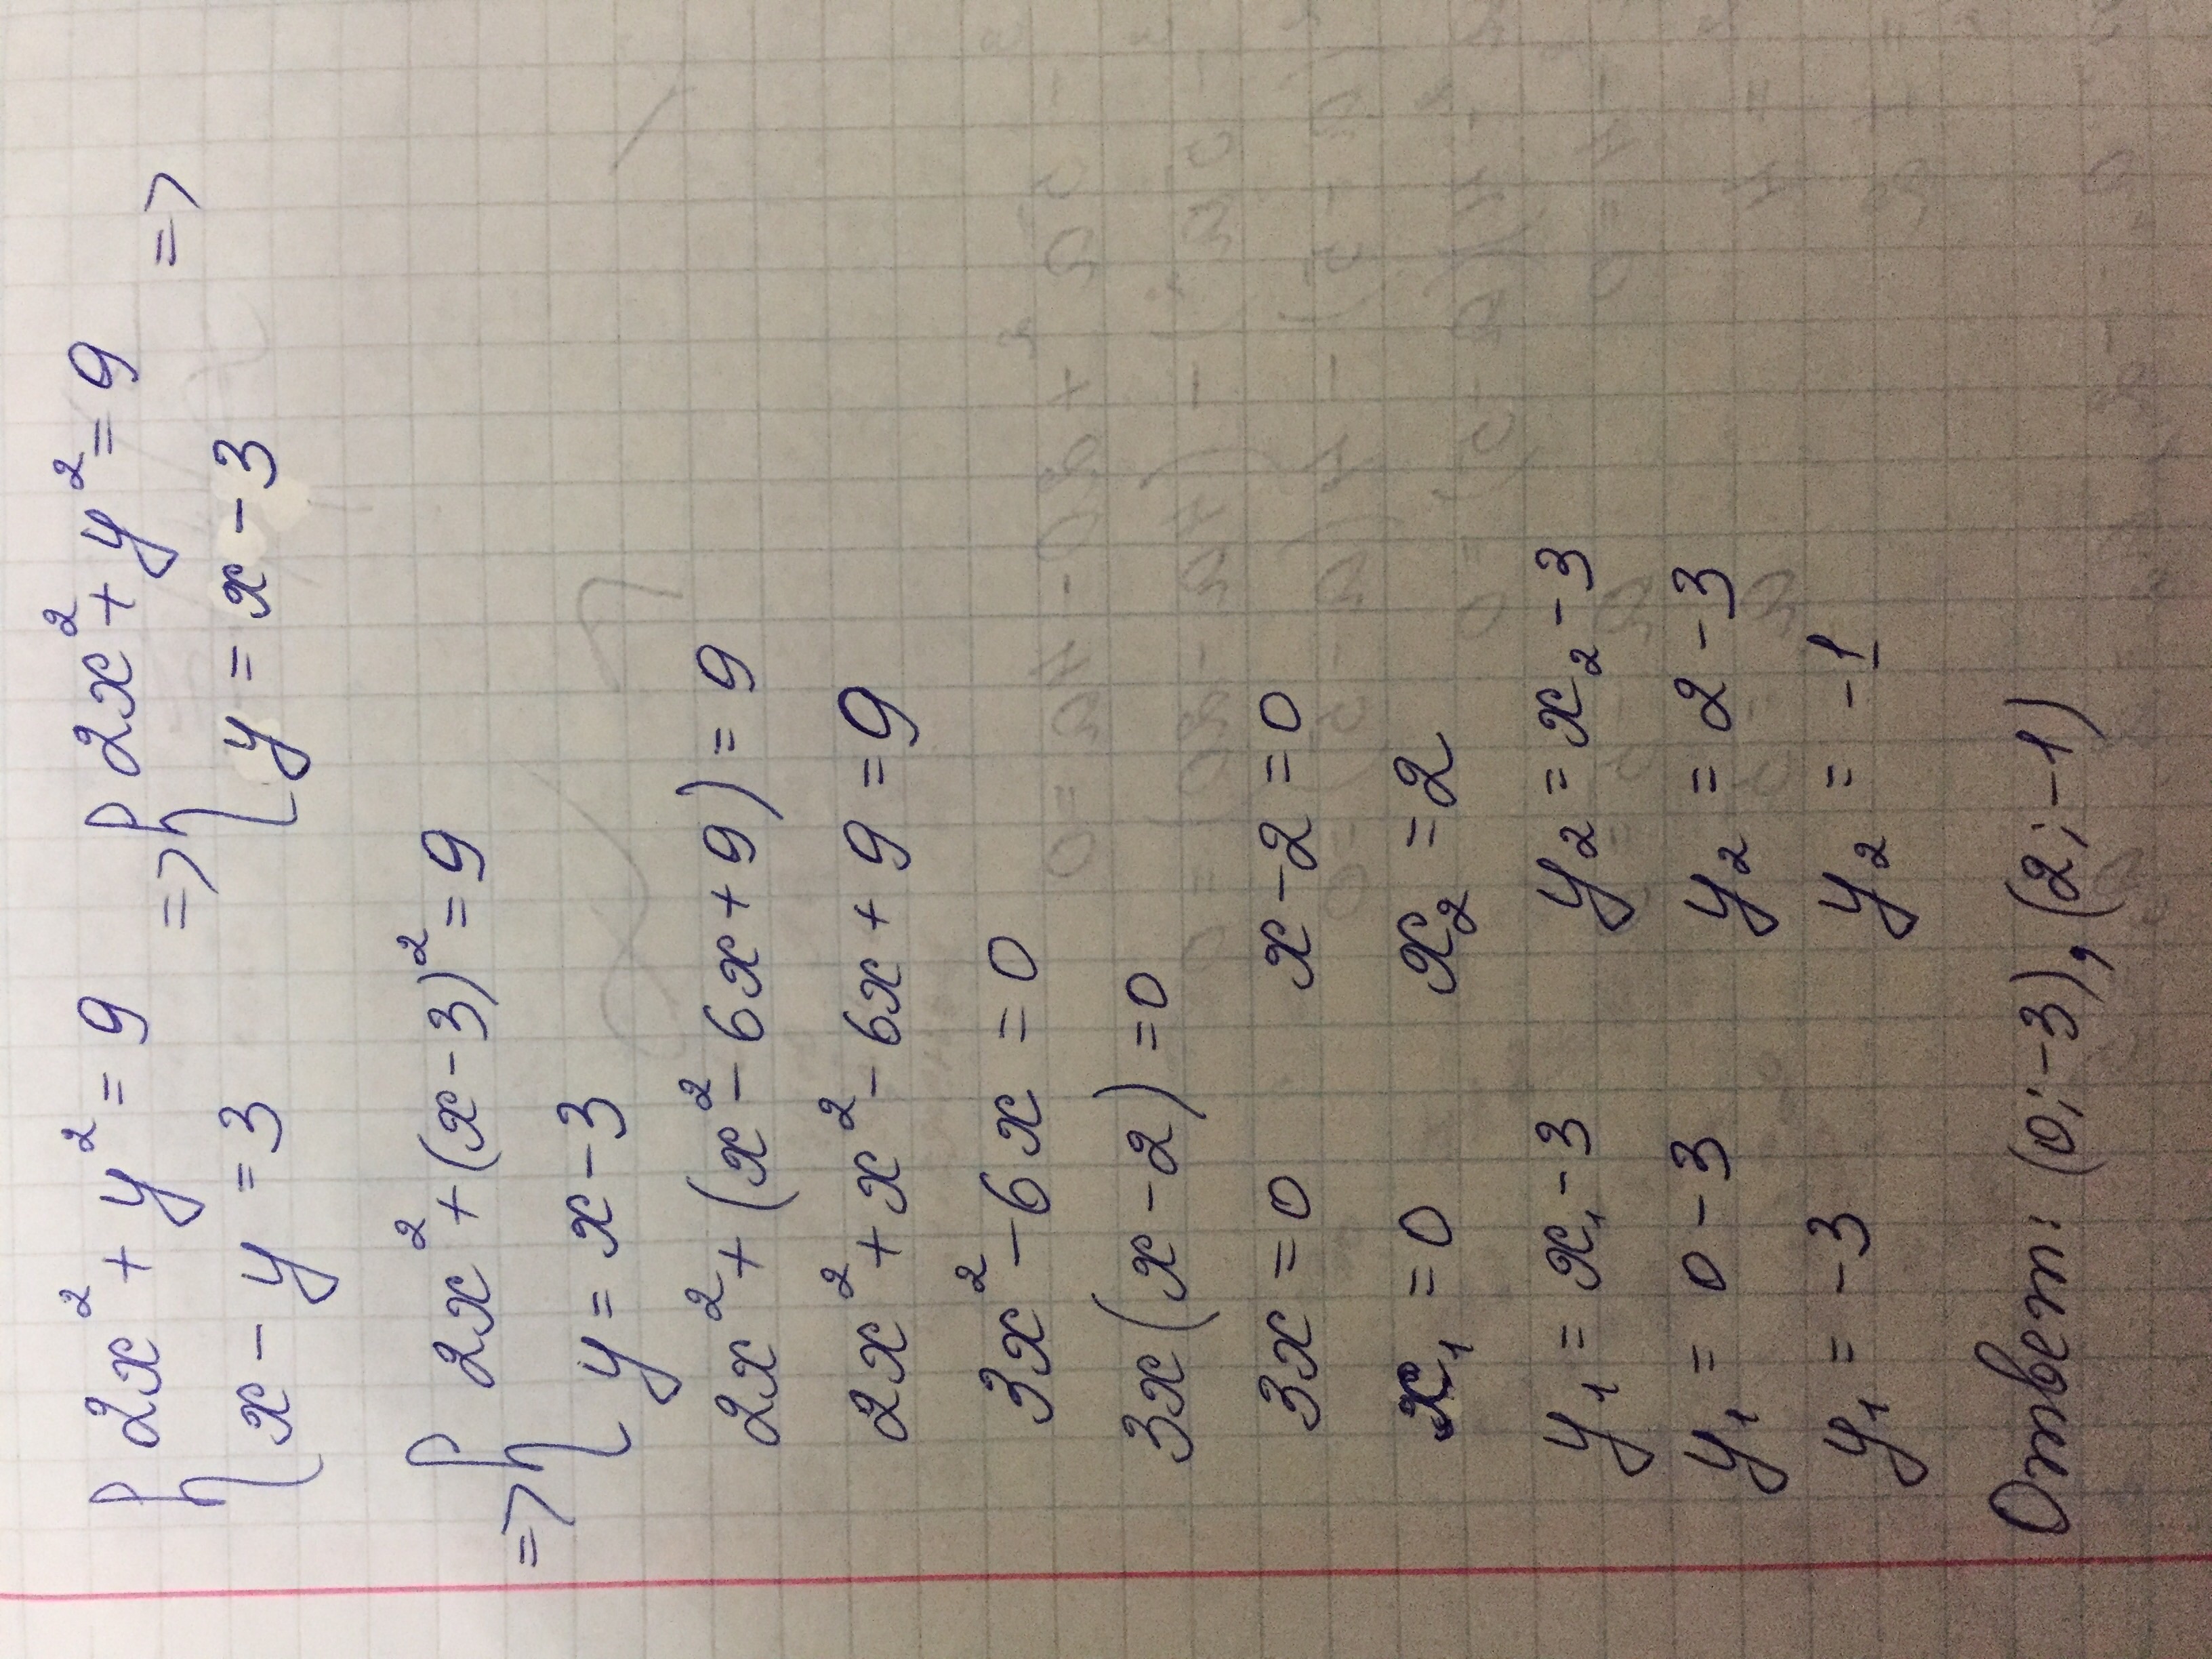 { 2x² + y² = 9 => { 2x² + y² = 9 =>
x - y = 3 y = x - 3
=> { 2x² + (x - 3)² = 9
y = x - 3
2x² + (x² - 6x + 9) = 9
2x² + x² - 6x + 9 = 9
3x² - 6x = 0
3x (x - 2) = 0
3x = 0 x - 2 = 0
x₁ = 0 x₂ = 2
y₁ = x₁ - 3 y₂ = x₂ - 3
y₁ = 0 - 3 y₂ = 2 - 3
y₁ = -3 y₂ = -1
Ответ: (0; -3), (2; -1)